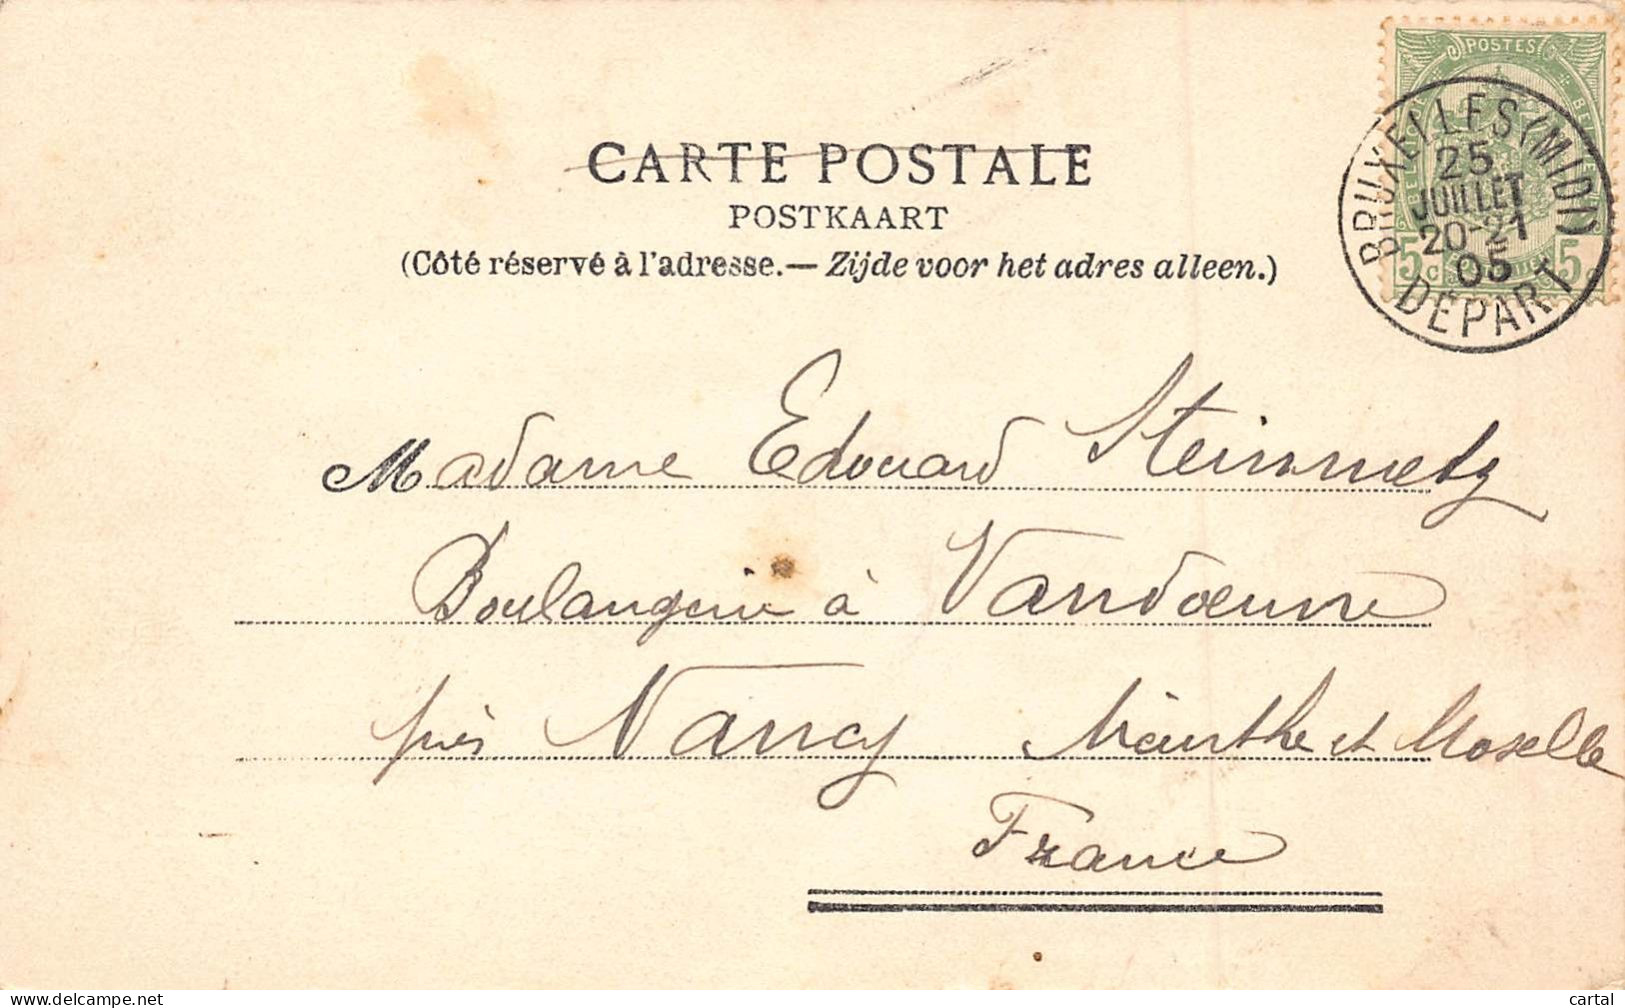 CARTE POSTALE
POSTKAART
(Côté réservé à l'adresse.— Zijde voor het adres alleen.)
POSTES
5 c 5 c
BRUXELLES (MIDI)
25
JUILLET
20-21
05
DEPART
Madame Edouard Steinmetz
Boulangerie à Vandoeuvre
près Nancy Meurthe et Moselle
France
www.delcampe.net
cartal